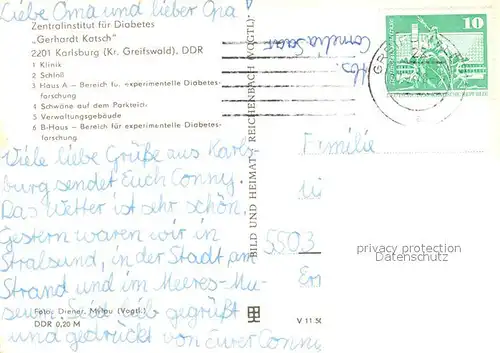 Liebe Oma und lieber Opa
Zentralinstitut für Diabetes
„Gerhardt Katsch"
2201 Karlsburg (Kr. Greifswald), DDR
1 Klinik
2 Schloß
3 Haus A – Bereich für experimentelle Diabetes-
forschung
4 Schwäne auf dem Parkteich
5 Verwaltungsgebäude
6 B-Haus – Bereich für experimentelle Diabetes-
forschung
Viele liebe Grüße aus Karls-
burg sendet Euch Conny.
Das Wetter ist sehr schön.
Gestern waren wir in
Stralsund, in der Stadt, am
Strand und im Meeres-Mu-
seum. Seid lieb gegrüßt
und gedrückt von Eurer Conny
Foto: Diener, Mylau (Vogtl.)
DDR 0,20 M
BILD UND HEIMAT REICHENBACH (VOGTL)
V 11 50
Abs
Cornelia
10
Familie
5503
privacy protection
Datenschutz